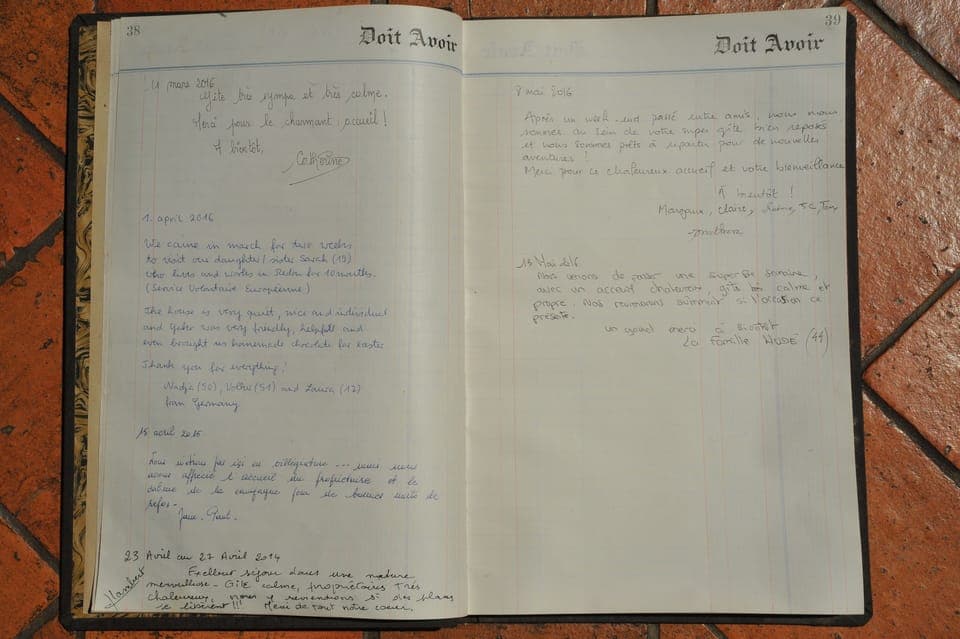 38
Doit Avoir
11 mars 2016
Gîte très sympa et très calme.
Merci pour le charmant accueil !
A bientôt,
Catherine
1. april 2016
We came in march for two weeks
to visit our daughter/sister Sarah (19)
who lives and works in Redon for 10 months.
(Service Volontaire Européenne)
The house is very quiet, nice and individual
and Yther was very friendly, helpfull and
even brought us homemade chocolate for easter
Thank you for everything!
Nadja (50), Volker (51) and Laura (17)
from Germany
15 avril 2016
Nous n'étions pas ici en villégiature ... mais nous
avons apprécié l'accueil du propriétaire et le
calme de la campagne pour de bonnes nuits de
repos.
Jean-Paul.
23 Avril au 27 Avril 2014
Excellent séjour dans une nature
merveilleuse - Gîte calme, propriétaires Très
chaleureux, nous y reviendrons si des places
se libèrent !!! Merci de tout notre coeur.
Hambert
39
Doit Avoir
8 mai 2016
Après un week-end passé entre amis, nous nous
sommes au sein de votre super gîte bien reposés
et nous sommes prêts à repartir pour de nouvelles
aventures !
Merci pour ce chaleureux accueil et votre bienveillance
À bientôt !
Margaux, Claire,
Jonathan
15 Mai 2016
Nous venons de passer une superbe semaine,
avec un accueil chaleureux, gîte très calme et
propre. Nous reviendrons sûrement si l'occasion ce
présente.
un grand merci à bientôt
La famille (44)